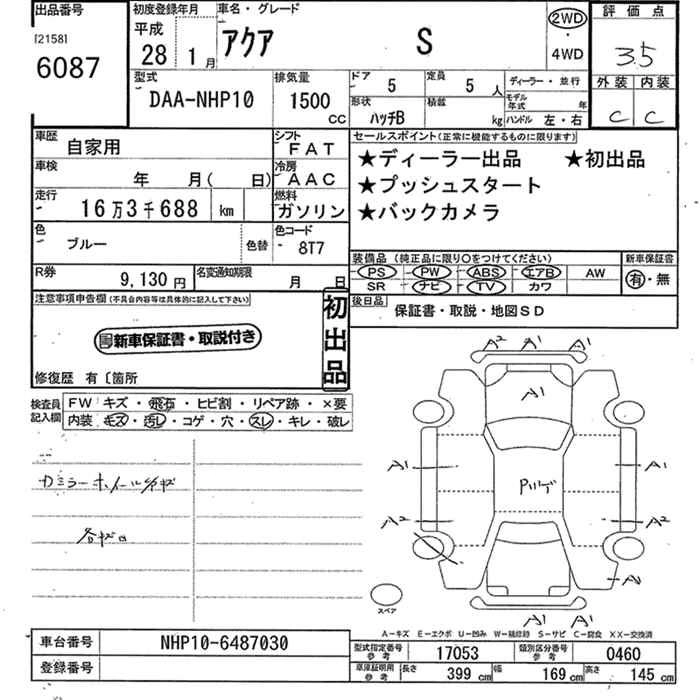 出品番号 初度登録年月 車名・グレード 評価点
[2158] 平成 2WD
6087 28 1月 アクア S ・ 3.5
4WD
型式 排気量 ドア 5 定員 5人 ディーラー・並行 外装 内装
DAA-NHP10 1500 CC 形状 ハッチB 積載 kg モデル年式 年 C C
ハンドル 左・右
車歴 自家用 シフト FAT セールスポイント(正常に機能するものに限ります)
車検 年 月( 日) 冷房 AAC ★ディーラー出品 ★初出品
走行 16万3千688 km 燃料 ガソリン ★プッシュスタート
★バックカメラ
色 ブルー 色替 色コード 8T7
装備品 (純正品に限り○をつけてください) 新車保証書
R券 9,130円 名変通知期限 月 日 PS PW ABS エアB AW 有・無
SR ナビ TV カワ
注意事項申告欄(不具合内容等は具体的に記入して下さい) 初出品 後日品 保証書・取説・地図SD
新車保証書・取説付き
修復歴 有〔箇所
検査員記入欄 FW キズ・飛石・ヒビ割・リペア跡・×要
内装 キズ・汚レ・コゲ・穴・スレ・キレ・破レ
A2 A1 A1
A1
A1 A1
カミラーホイールガキズ
A2 A2
各キロ
A1 A1
スペア
A-キズ E-エクボ U-凹み W-補修跡 S-サビ C-腐食 XX-交換済
車台番号 NHP10-6487030 型式指定番号 参考 17053 類別区分番号 参考 0460
登録番号 車庫証明用 参考 長さ 399cm 幅 169cm 高さ 145cm